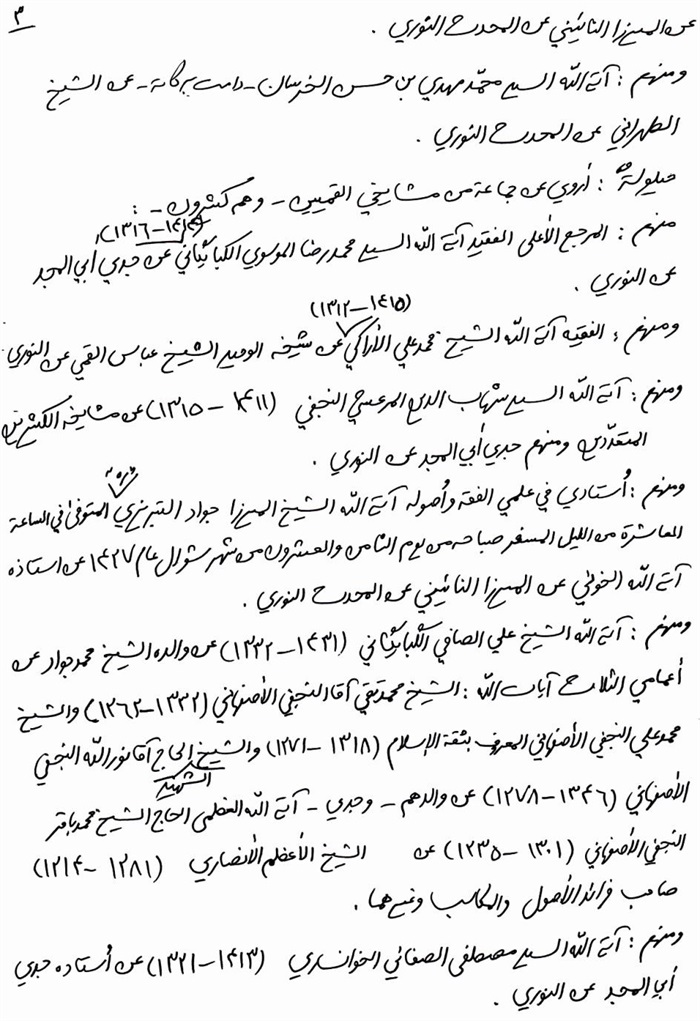 ٣
عن الميرزا النائيني عن المحدث النوري .
ومنهم : آية الله السيد محمّد مهدي بن حسن الخرسان - دامت بركاته - عن الشيخ
الطهراني عن المحدث النوري .
حيلولة : أروي عن جماعة من مشايخي القميين - وهم كثيرون - :
(١٣١٦-١٤١٤)
منهم : المرجع الأعلى الفقيد آية الله السيد محمد رضا الموسوي الگلپايگاني عن جدي أبي المجد
عن النوري .
(١٣١٢-١٤١٥)
ومنهم : الفقيه آية الله الشيخ محمد علي الأراكي عن شيخه الوحيد الشيخ عباس القمي عن النوري
ومنهم : آية الله السيد شهاب الدين المرعشي النجفي (١٣١٥ - ١٤١١) عن مشايخه الكثيرين
المتعدّدين ومنهم جدي أبي المجد عن النوري .
قدّه
ومنهم : أُستاذي في علمي الفقه وأُصوله آية الله الشيخ الميرزا جواد التبريزي المتوفى في الساعة
العاشرة من الليل المسفر صباحه من يوم الثامن والعشرون من شهر شوال عام ١٤٢٧ عن استاذه
آية الله الخوئي عن الميرزا النائيني عن المحدث النوري .
ومنهم : آية الله الشيخ علي الصافي الگلپايگاني (١٣٣٢-١٤٣١) عن والده الشيخ محمد جواد عن
أعمامي الثلاث آيات الله : الشيخ محمد تقي آقا النجفي الأصفهاني (١٢٦٢-١٣٣٢) والشيخ
محمد علي النجفي الأصفهاني المعروف بثقة الإسلام (١٢٧١-١٣١٨) والشيخ الحاج آقا نور الله النجفي
الشهيد
الأصفهاني (١٢٧٨-١٣٤٦) عن والدهم - وجدي - آية الله العظمى الحاج الشيخ محمد باقر
النجفي الأصفهاني (١٢٣٥-١٣٠١) عن الشيخ الأعظم الأنصاري (١٢١٤-١٢٨١)
صاحب فرائد الأصول والمكاسب وغيرهما .
ومنهم : آية الله السيد مصطفى الصفائي الخوانساري (١٣٢١-١٤١٣) عن أُستاذه جدي
أبي المجد عن النوري .